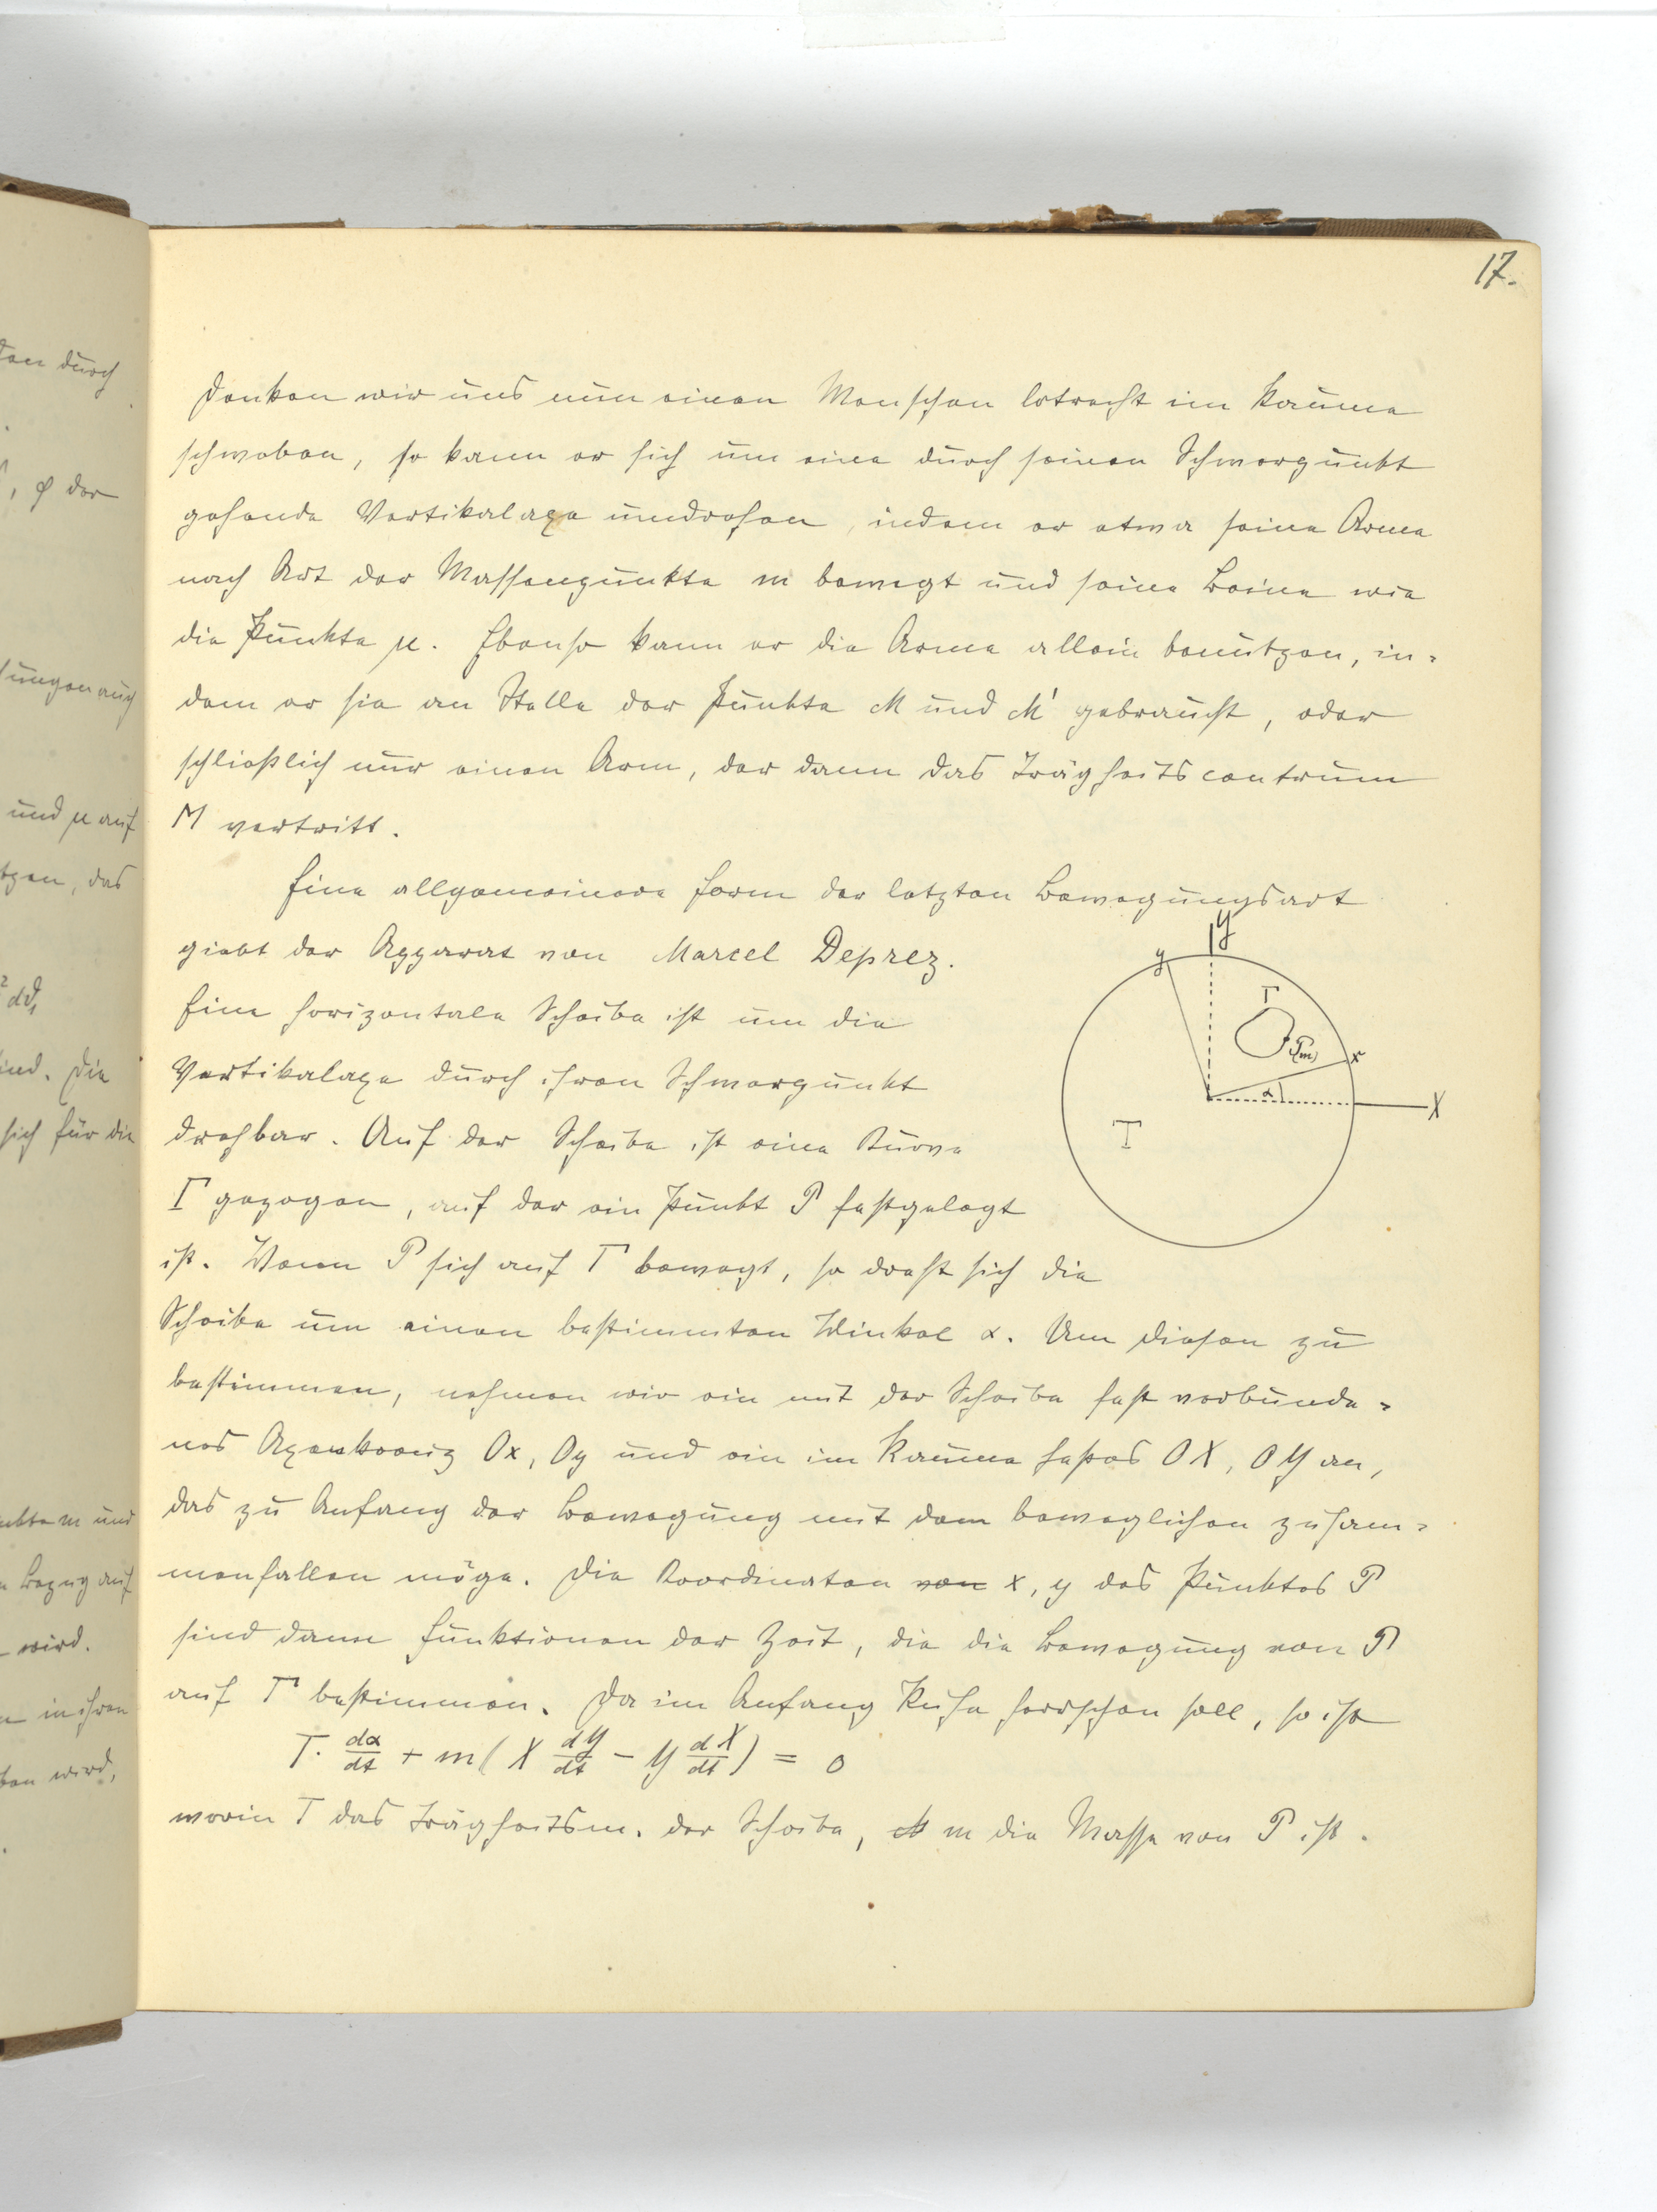 17.
Denken wir uns nun einen Menschen lotrecht im Raume
schweben, so kann er sich um eine durch seinen Schwerpunkt
gehende Vertikalaxe umdrehen, indem er etwa seine Arme
nach Art der Massenpunkte m bewegt und seine Beine wie
die Punkte μ. Ebenso kann er die Arme allein benützen, in-
dem er sie an Stelle der Punkte M und M' gebraucht, oder
schließlich nur einen Arm, der dann das Trägheitscentrum
M vertritt.
Eine allgemeinere Form der letzten Bewegungsart
giebt der Apparat von Marcel Deprez.
Eine horizontale Scheibe ist um die
Vertikalaxe durch ihren Schwerpunkt
drehbar. Auf der Scheibe ist eine Kurve
Γ gezogen, auf der ein Punkt P festgelegt
ist. Wenn P sich auf Γ bewegt, so dreht sich die
Scheibe um einen bestimmten Winkel α. Um diesen zu
bestimmen, nehmen wir ein mit der Scheibe fest verbunde-
nes Axenkreuz Ox, Oy und ein im Raume festes OX, OY an,
das zu Anfang der Bewegung mit dem beweglichen zusam-
menfallen möge. Die Koordinaten von x, y des Punktes P
sind dann Funktionen der Zeit, die die Bewegung von P
auf Γ bestimmen. Da im Anfang Ruhe herrschen soll, so ist
T. dα/dt + m(X dY/dt - Y dX/dt) = 0
worin T das Trägheitsm. der Scheibe, m die Masse von P ist.
Y
y
Γ
P(m)
x
α
X
T
den durch
, φ der
und μ auf
tzen, das
² dϑ,
ind. Die
sich für die
nkte m und
n Bezug auf
wird.
n in ihren
ben wird,